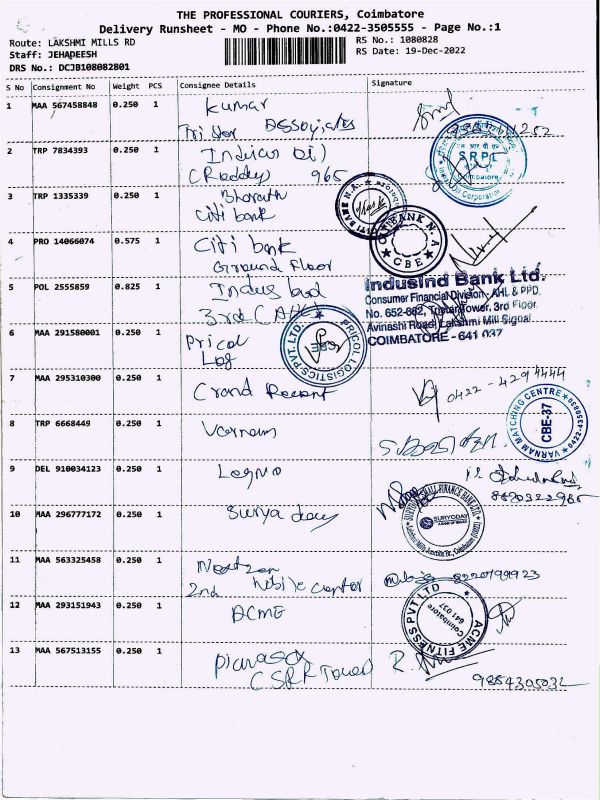 THE PROFESSIONAL COURIERS, Coimbatore
Delivery Runsheet - MO - Phone No.:0422-3505555 - Page No.:1
Route: LAKSHMI MILLS RD
RS No.: 1080828
Staff: JEHADEESH
RS Date: 19-Dec-2022
DRS No.: DCJB108082801
S No Consignment No Weight PCS Consignee Details Signature
1 MAA 567458848 0.250 1 Kumar
Associates
2 TRP 7834393 0.250 1 Indian Oil
(Reddy) 965
SRPL
Coimbatore
3 TRP 1335339 0.250 1 Bharath
Citi bank
CITIBANK N.A
CBE
4 PRO 14066074 0.575 1 Citi bank
Ground Floor
5 POL 2555859 0.825 1 Indus Ind
3rd
IndusInd Bank Ltd.
Consumer Financial Division - AHL & PPD
No. 652-662, Tristar Tower, 3rd Floor
Avinashi Road, Lakshmi Mill Signal
COIMBATORE - 641 037
6 MAA 291580001 0.250 1 Pricol
Log
PRICOL LOGISTICS PVT. LTD.
CBE
7 MAA 295310300 0.250 1 Grand Regent
0422-4294444
8 TRP 6668449 0.250 1 Varnam
VARNAM MATCHING CENTRE
CBE-37
9 DEL 910034123 0.250 1
8820322965
10 MAA 296777172 0.250 1 Surya day
SURYODAY SMALL FINANCE BANK LTD.
SURYODAY
11 MAA 563325458 0.250 1
2nd Center
8220199923
12 MAA 293151943 0.250 1 ACME
ACME FITNESS PVT LTD
Coimbatore
641 037
13 MAA 567513155 0.250 1
Tower
9884305032